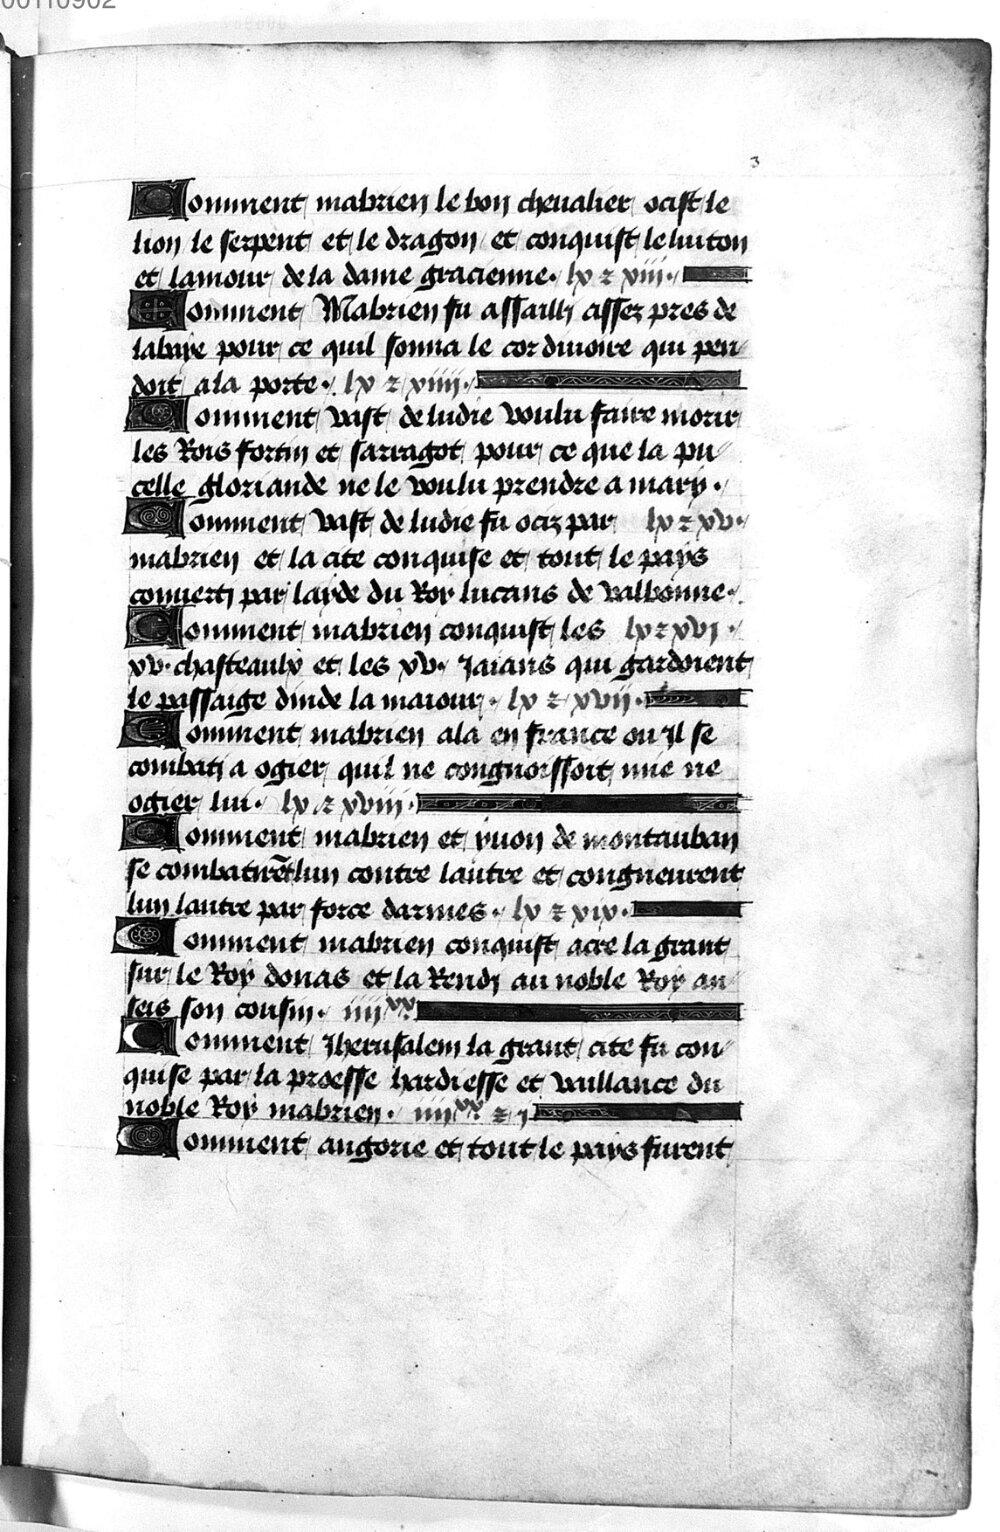 00110902
3
Comment mabrien le bon cheualier ocist le
lion le serpent et le dragon et conquist le luiton
et lamour de la dame gracienne. lx z xiii.
Comment Mabrien fu assailly assez pres de
labaye pour ce quil sonna le cor diuoire qui pen
doit ala porte. lx z xiiii.
Comment vast de ludie voulu faire morir
les Rois fortin et sarragot pour ce que la pu
celle gloriande ne le voulu prendre a mary.
Comment vast de ludie fu ociz par lx z xv.
mabrien et la cite conquise et tout le pays
conuerti par layde du Roy lucans de valbonne.
Comment mabrien conquist les lx z xvj.
xv. chasteaulx et les xv. Jaians qui gardoient
le passaige dinde la maiour. lx z xvii.
Comment mabrien ala en france ou Jl se
combati a ogier quil ne congnoissoit mie ne
ogier lui. lx z xviii.
Comment mabrien et yuon de montauban
se combatirēt lun contre lautre et congneurent
lun lautre par force darmes. lx z xix.
Comment mabrien conquist acre la grant
sur le Roy donas et la Rendj au noble Roy an
seis son cousin. iiii xx
Comment Jherusalem la grant cite fu con
quise par la proesse hardiesse et vaillance du
noble Roy mabrien. iiii xx z j
Comment angorie et tout le pays furent